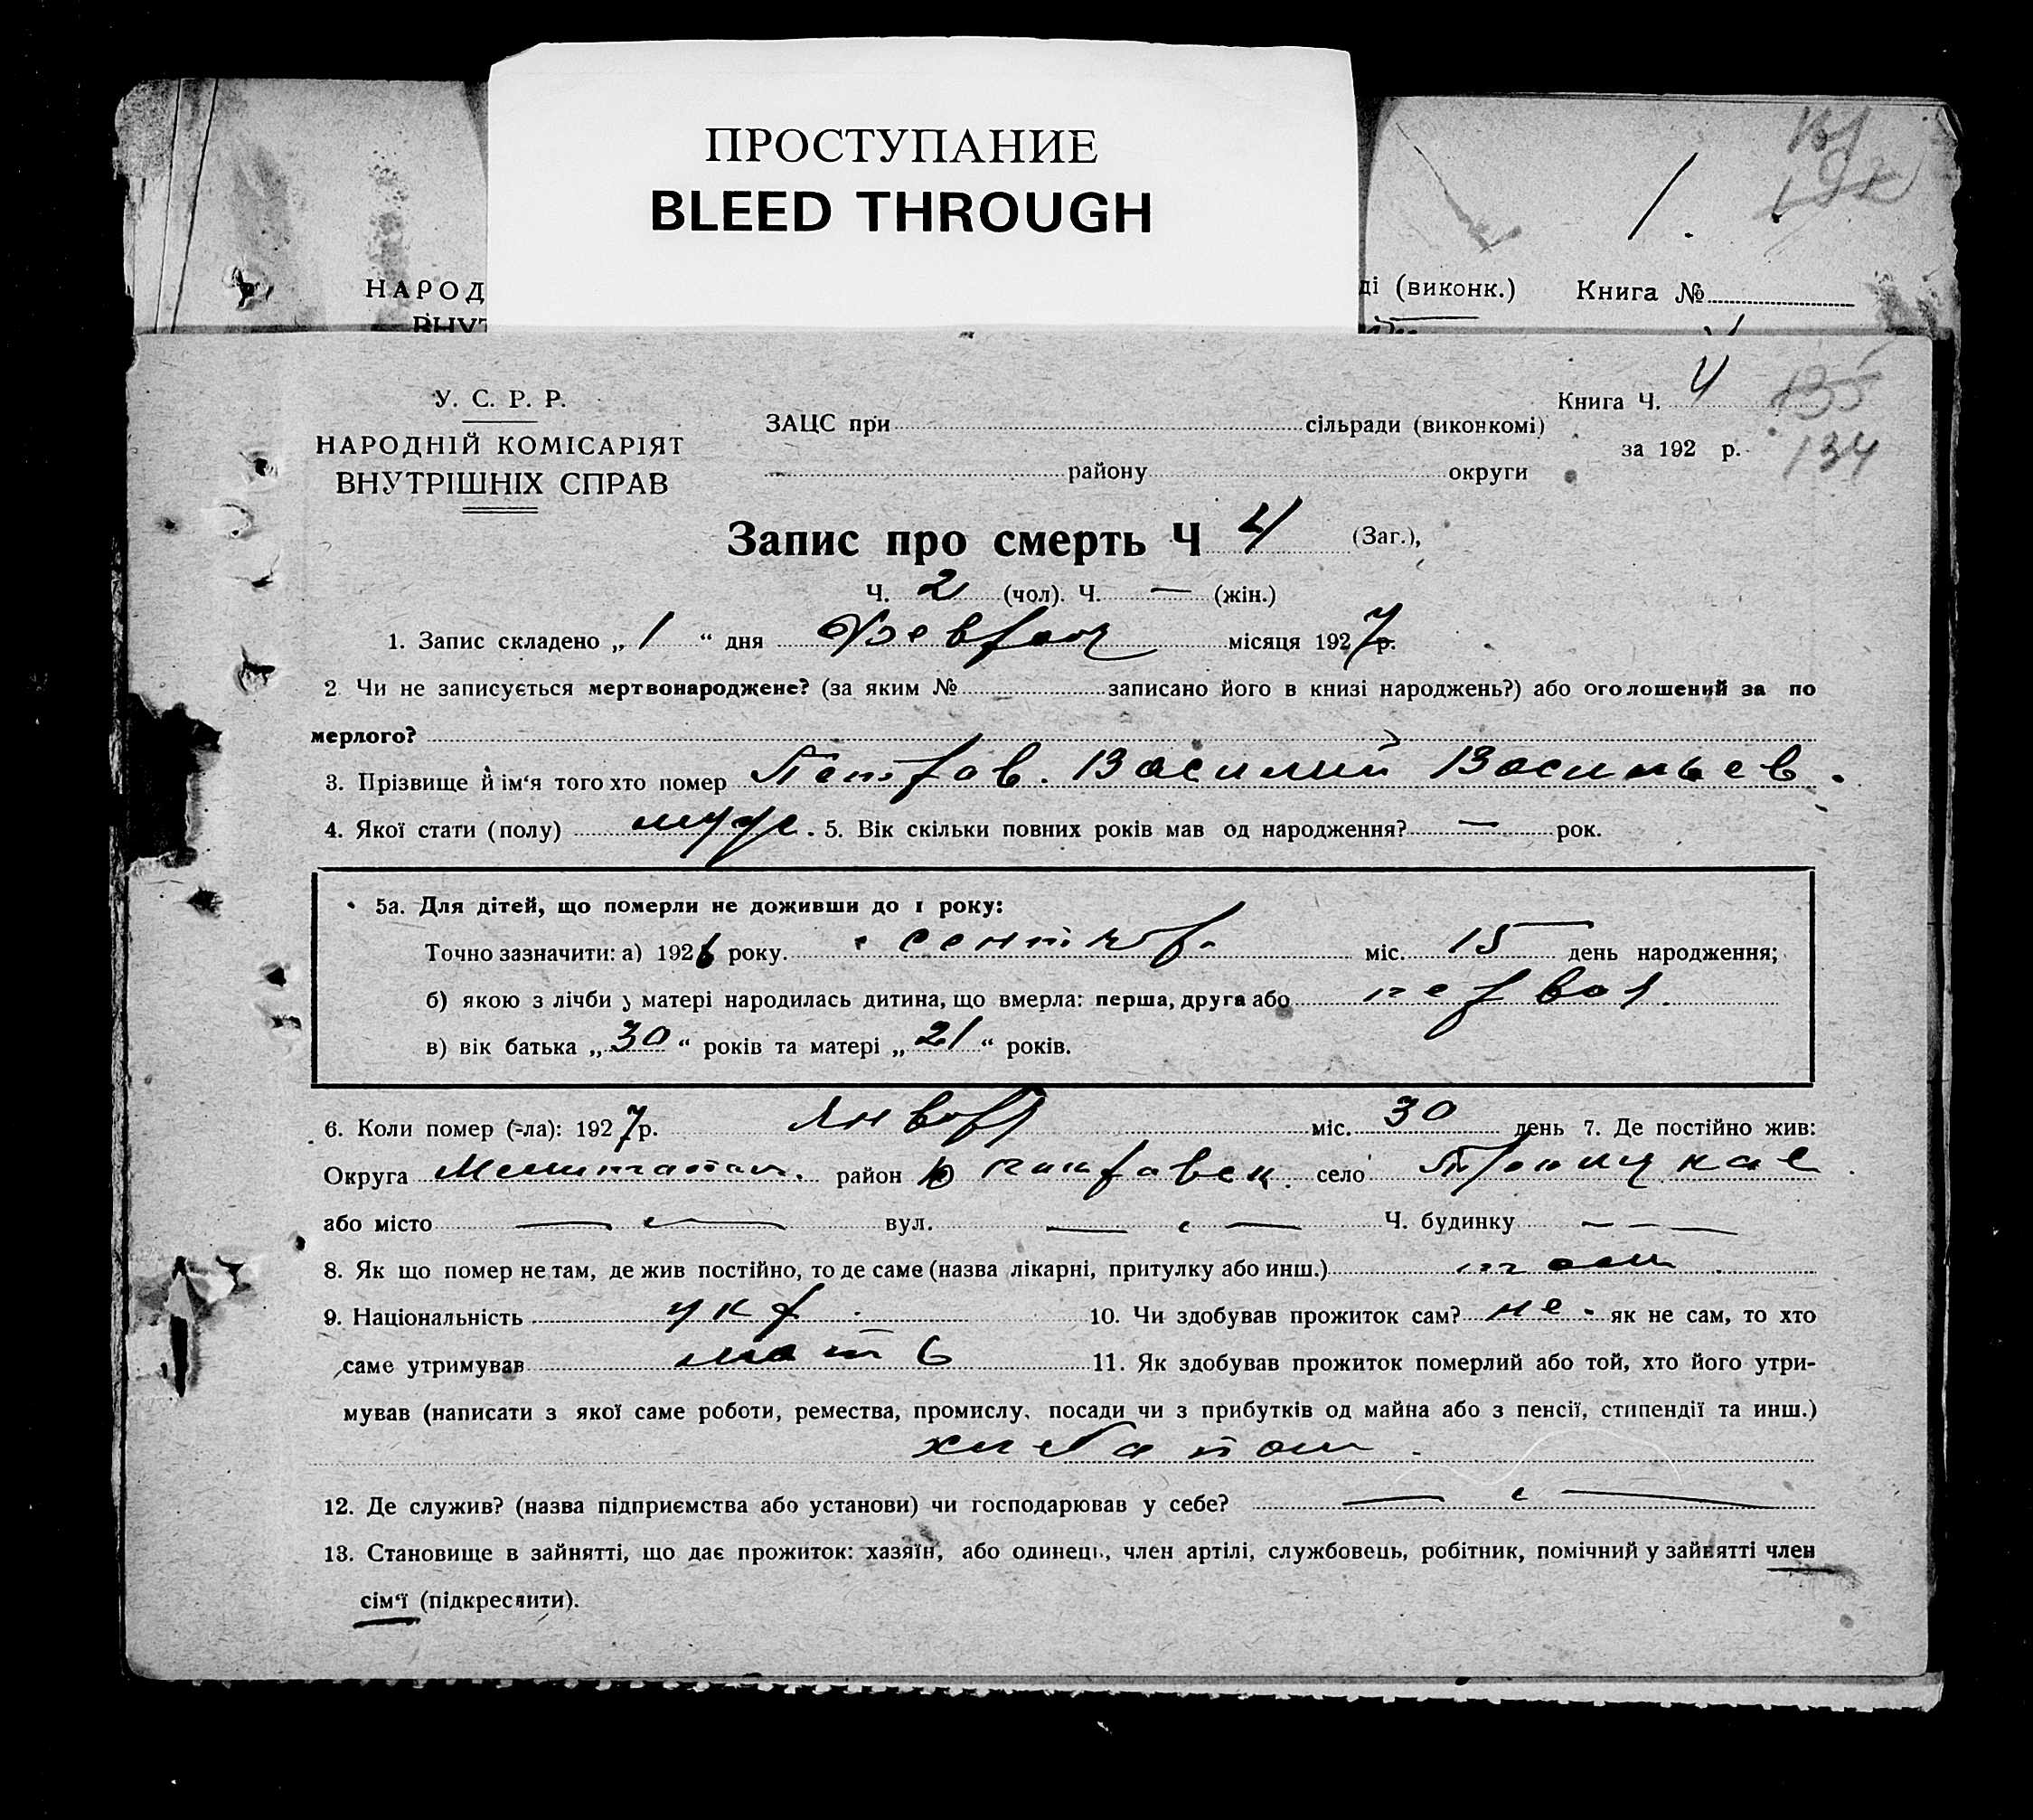 ПРОСТУПАНИЕ
BLEED THROUGH
1.
НАРОД ді (виконк.) Книга №
ВНУТ
У. С. Р. Р.
НАРОДНІЙ КОМІСАРІЯТ
ВНУТРІШНІХ СПРАВ
ЗАЦС при сільради (виконкомі)
району округи
Книга Ч. 4 135
за 192 р. 134
Запис про смерть Ч 4 (Заг.),
Ч. 2 (чол). Ч. — (жін.)
1. Запис складено „ 1 “ дня Феврал місяця 1927 р.
2 Чи не записується мертвонароджене? (за яким № записано його в книзі народжень?) або оголошений за по
мерлого?
3. Прізвище й ім‘я того хто помер Петров. Василий Васильев.
4. Якої стати (полу) муж. 5. Вік скільки повних років мав од народження? — рок.
5а. Для дітей, що померли не доживши до 1 року:
Точно зазначити: а) 1926 року. сентяб. міс. 15 день народження;
б) якою з лічби у матері народилась дитина, що вмерла: перша, друга або первая.
в) вік батька „ 30 “ років та матері „ 21 “ років.
6. Коли помер (-ла): 1927 р. январ міс. 30 день 7. Де постійно жив:
Округа Мелитопол. район село
або місто — вул. — Ч. будинку — — —
8. Як що помер не там, де жив постійно, то де саме (назва лікарні, притулку або инш.) там
9. Національність укр. 10. Чи здобував прожиток сам? не - як не сам, то хто
саме утримував мать 11. Як здобував прожиток померлий або той, хто його утри-
мував (написати з якої саме роботи, ремества, промислу, посади чи з прибутків од майна або з пенсії, стипендії та инш.)
хлебопаш.
12. Де служив? (назва підприємства або установи) чи господарював у себе? —
13. Становище в зайнятті, що дає прожиток: хазяїн, або одинець, член артілі, службовець, робітник, помічний у зайнятті член
сім‘ї (підкреслити).